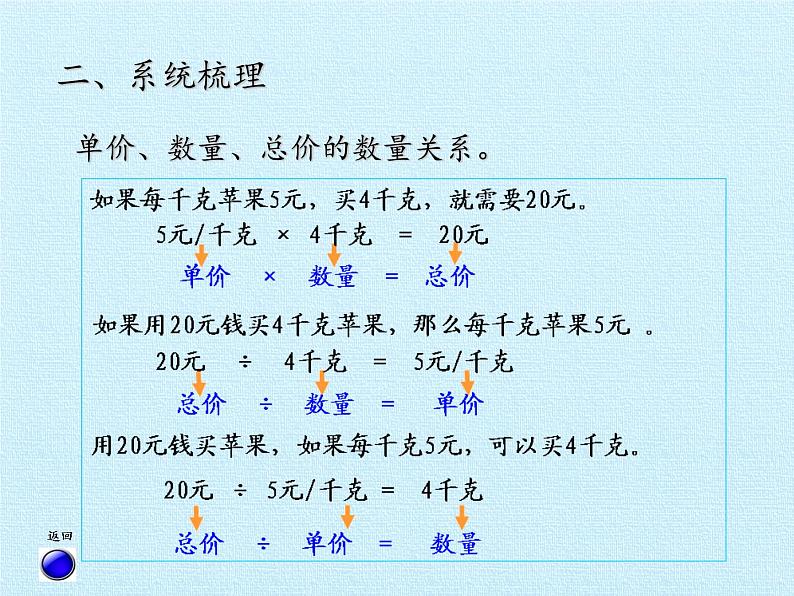 二、系统梳理
单价、数量、总价的数量关系。
如果每千克苹果5元，买4千克，就需要20元。
5元/千克 × 4千克 = 20元
单价 × 数量 = 总价
如果用20元钱买4千克苹果，那么每千克苹果5元 。
20元 ÷ 4千克 = 5元/千克
总价 ÷ 数量 = 单价
用20元钱买苹果，如果每千克5元，可以买4千克。
20元 ÷ 5元/千克 = 4千克
总价 ÷ 单价 = 数量
返回